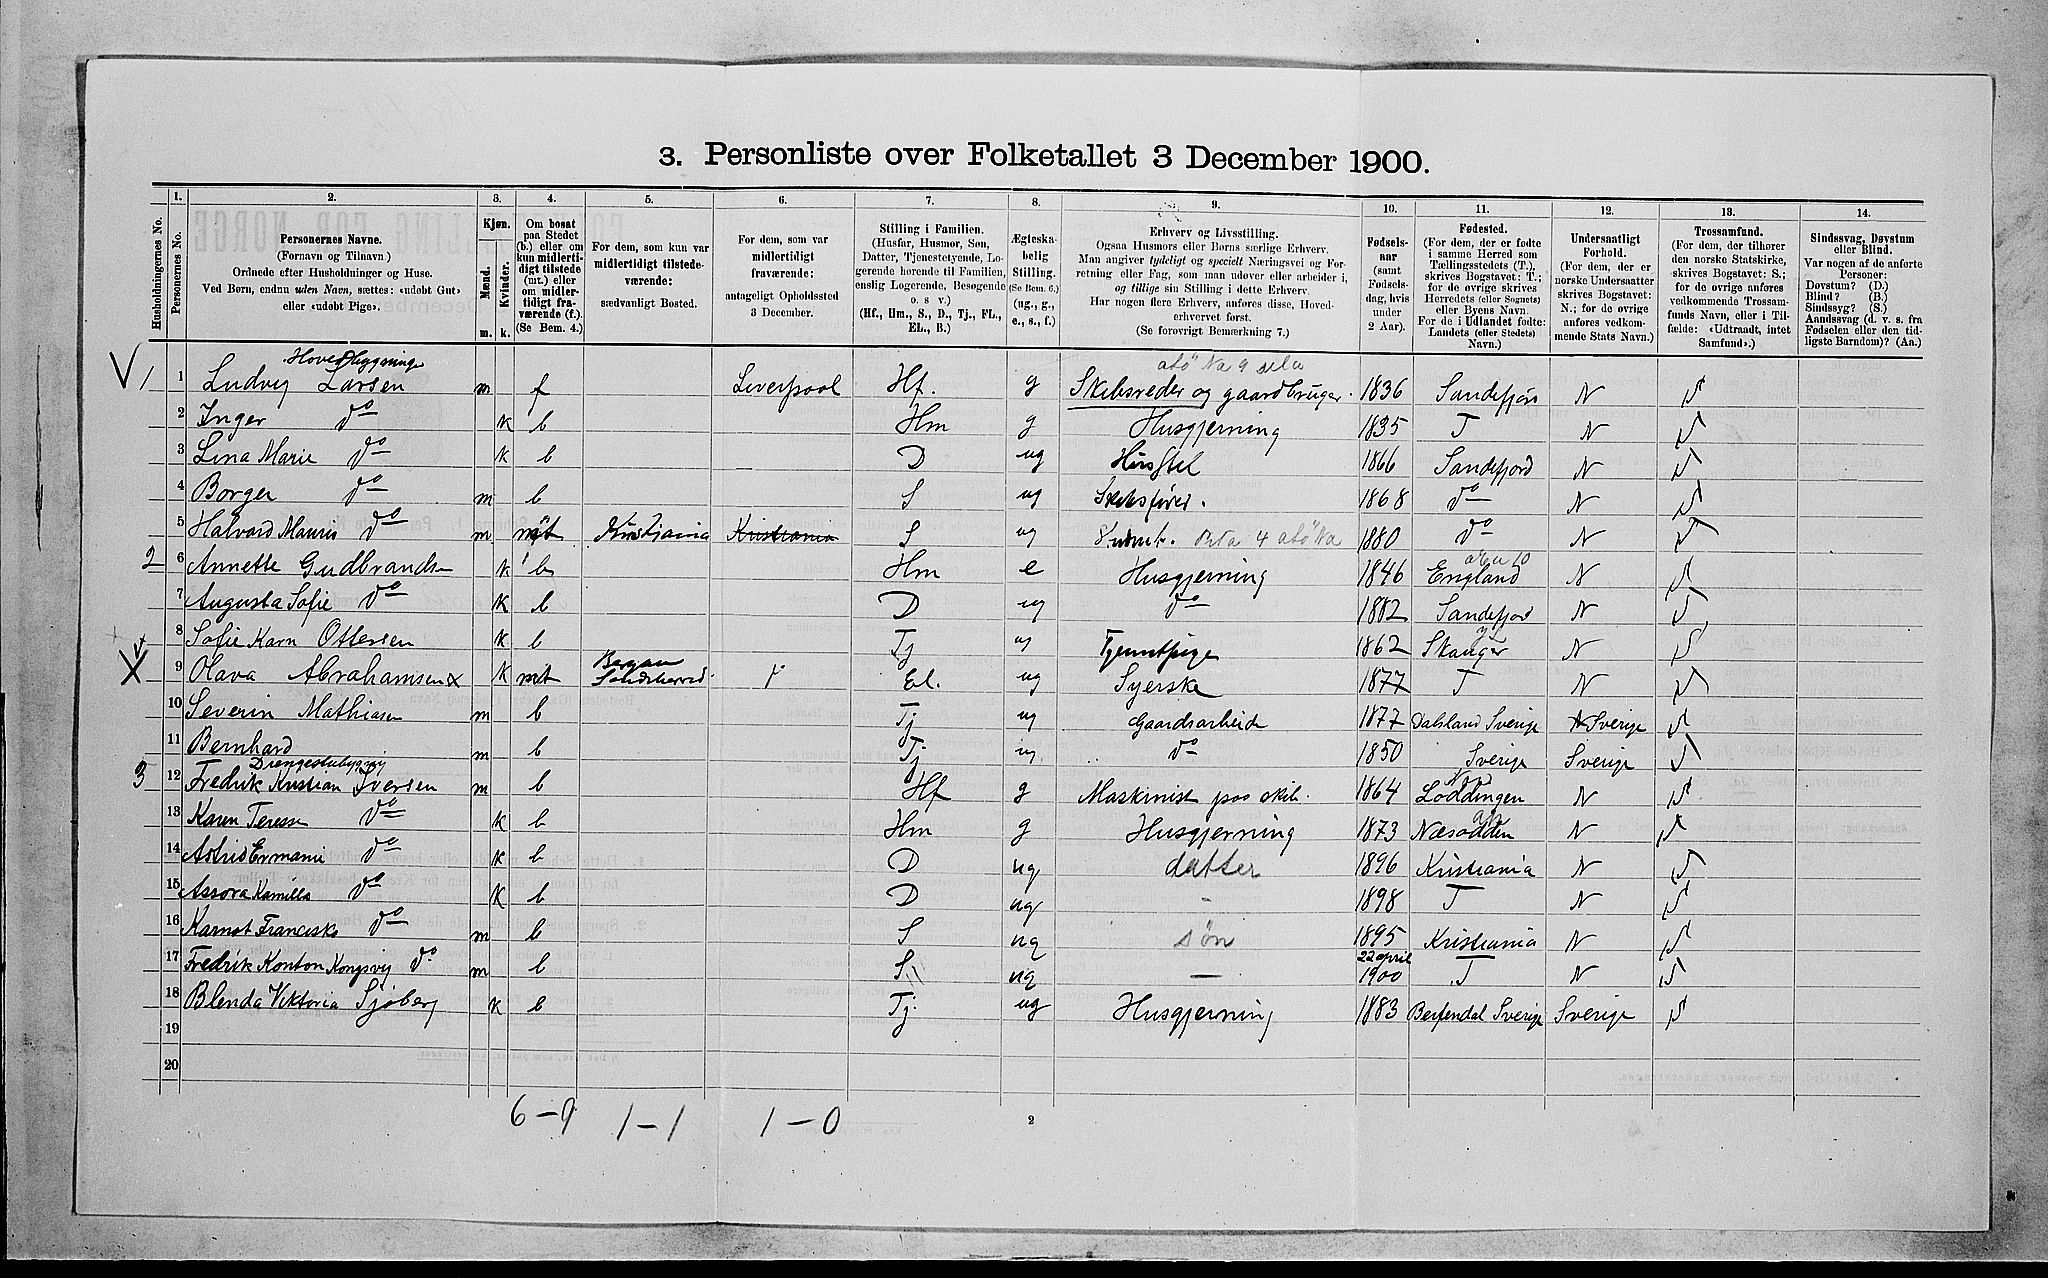 3. Personliste over Folketallet 3 December 1900.
1. 2. 3. 4. 5. 6. 7. 8. 9. 10. 11. 12. 13. 14.
Husholdningernes No.
Personernes No.
Personernes Navne.
(Fornavn og Tilnavn.)
Ordnede efter Husholdninger og Huse.
Ved Børn, endnu uden Navn, sættes: «udøbt Gut»
eller «udøbt Pige».
Kjøn.
Mænd.
Kvinder.
m. k.
Om bosat
paa Stedet
(b.) eller om
kun midlerti-
digt tilstede
(mt.) eller
om midler-
tidigt fra-
værende (f.).
(Se Bem. 4.)
For dem, som kun var
midlertidigt tilstede-
værende:
sædvanligt Bosted.
For dem, som var
midlertidigt
fraværende:
antageligt Opholdssted
3 December.
Stilling i Familien.
(Husfar, Husmor, Søn,
Datter, Tjenestetyende, Lo-
gerende hørende til Familien,
enslig Logerende, Besøgende
o. s v.)
(Hf., Hm., S., D., Tj., FL.,
EL., B.)
Ægteska-
belig
Stilling.
(Se Bem. 6.)
(ug., g.,
e., s., f.)
Erhverv og Livsstilling.
Ogsaa Husmors eller Børns særlige Erhverv.
Man angiver tydeligt og specielt Næringsvei og For-
retning eller Fag, som man udøver eller arbeider i,
og tillige sin Stilling i dette Erhverv.
Har nogen flere Erhverv, anføres disse, Hoved-
erhvervet først.
(Se forøvrigt Bemærkning 7.)
Fødsels-
aar
(samt
Fødsels-
dag, hvis
under
2 Aar).
Fødested.
(For dem, der er fødte
i samme Herred som
Tællingsstedets (T.),
skrives Bogstavet: T.;
for de øvrige skrives
Herredets (eller Sognets)
eller Byens Navn.
For de i Udlandet fødte:
Landets (eller Stedets)
Navn.)
Undersaatligt
Forhold.
(For dem, der er
norske Undersaatter
skrives Bogstavet:
N.; for de øvrige
anføres vedkom-
mende Stats Navn.)
Trossamfund.
(For dem, der tilhører
den norske Statskirke,
skrives Bogstavet: S.;
for de øvrige anføres
vedkommende Trossam-
funds Navn, eller i Til-
fælde: «Udtraadt, intet
Samfund».)
Sindssvag, Døvstum
eller Blind.
Var nogen af de anførte
Personer:
Døvstum? (D.)
Blind? (B.)
Sindssyg? (S.)
Aandssvag (d. v. s. fra
Fødselen eller den tid-
ligste Barndom)? (Aa.)
Hovedbygninge
1 1 Ludvig Larsen m f Liverpool Hf. g Skibsreder og gaardbruger. 1836 Sandefjord N S
2 Inger do k b Hm g Husgjerning 1835 T N S
3 Lina Marie do k b D ug Husstel 1866 Sandefjord N S
4 Borger do m b S ug Skibsfører. 1868 do N S
5 Halvard Mauris do m mt Kristiania Kristiania S ug Student. 1880 do N S
2 6 Annette Gudbrandsen k b Hm e Husgjerning 1846 England N S
7 Augusta Sofie do k b D ug do 1882 Sandefjord N S
8 Sofie Karn Ottersen k b Tj u Tjenestpige 1862 Skauger N S
9 Olava Abrahamsen k mt Bergan Sandeherred. El. ug Syerske 1877 T N S
10 Severin Mathiasen m b Tj ug Gaardsarbeide 1877 Dalsland Sverige Sverige S
11 Bernhard m b Tj. ug do 1850 Sverige Sverige S
Drengestubygnig
3 12 Fredrik Kristian Iversen m b Hf g Maskinist paa skib. 1864 Loddingen N S
13 Karen Terese do k b Hm g Husgjerning 1873 Næsodden N S
14 Astrid Ermanie do k b D ug datter 1896 Kristiania N S
15 Assora Kamilla do k b D ug - 1898 T N S
16 Karnot Francisko do m b S ug søn 1895 Kristiania N S
17 Fredrik Konton Kongsvig do m b S ug — 22 april 1900 T N S
18 Blenda Viktoria Sjøberg k b Tj. ug Husgjerning 1883 Berfendal Sverige Sverige S
19
20
6-9 1-1 1-0 2